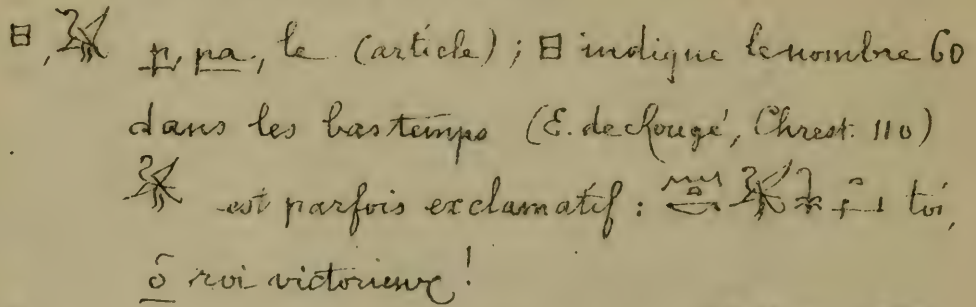 𓊪, 𓅮 p, pa, le (article) ; 𓊪 indique le nombre 60
dans les bas temps (E. de Rougé, Chrest. 110)
𓅮 est parfois exclamatif : 𓅮 toi,
ô roi victorieux !